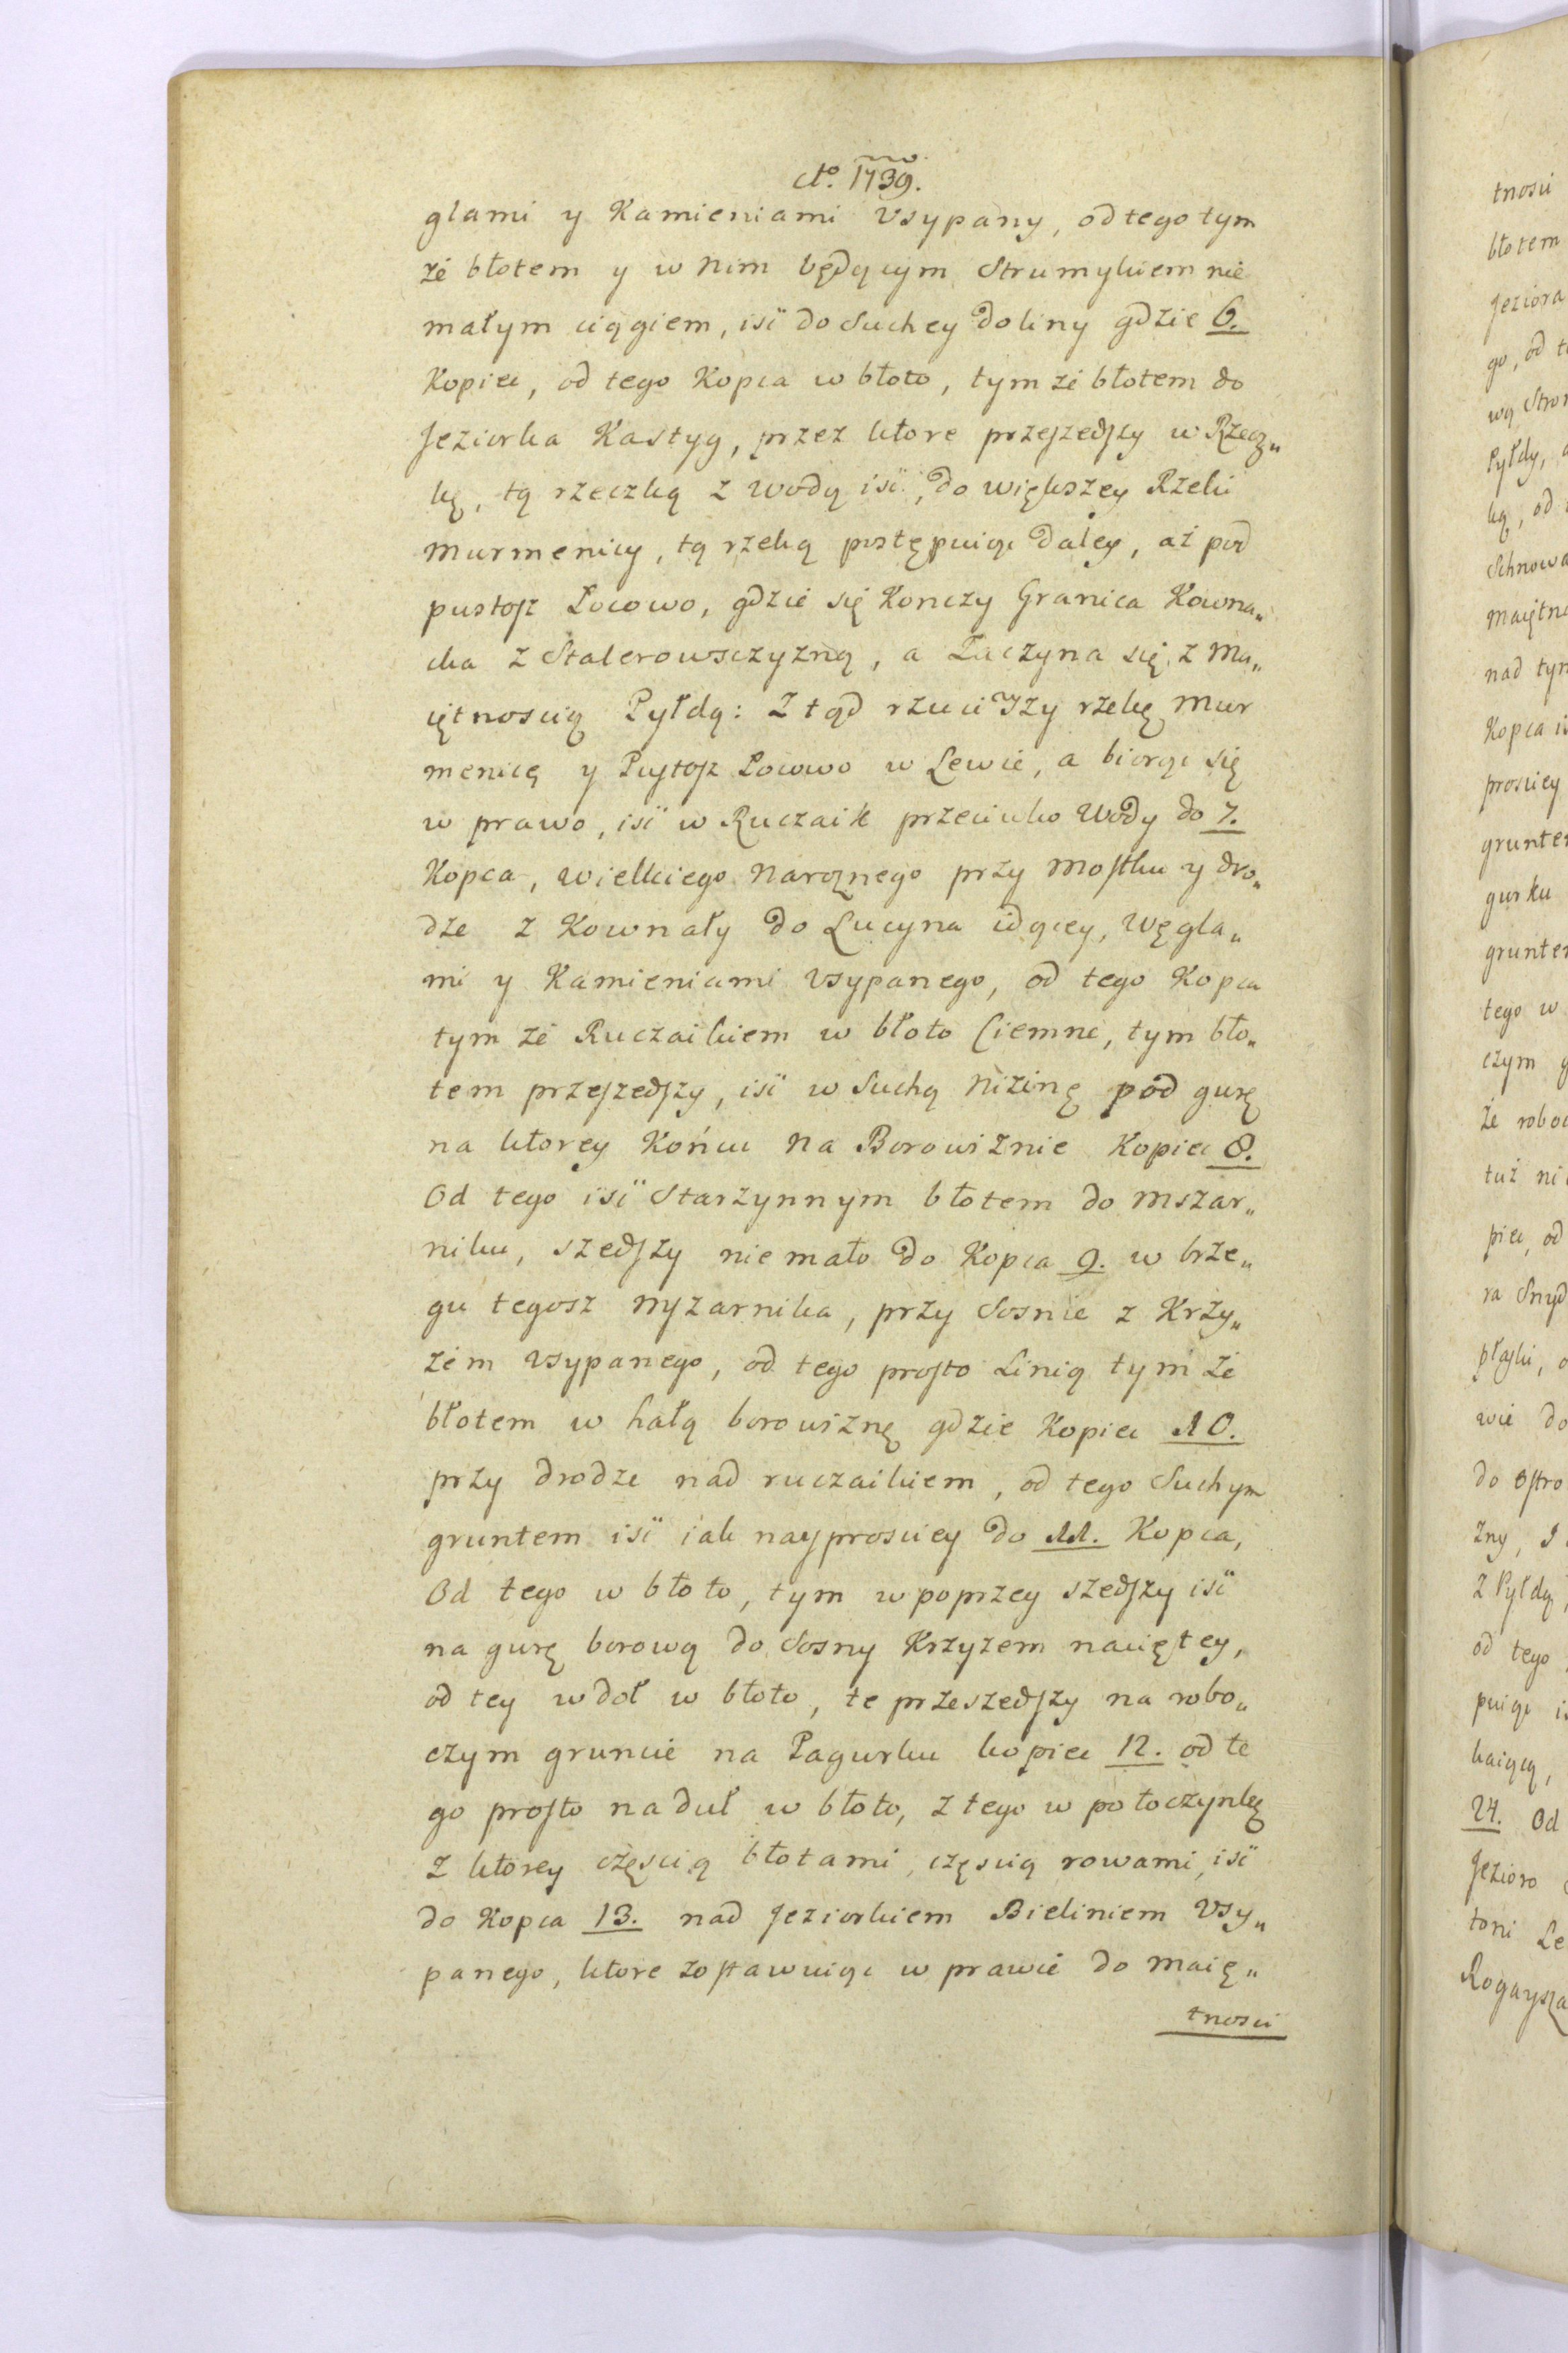 Ao. 1739.
glami y Kamieniami Vsypany, od tego tym
że błotem y w nim będącym Strumykiem nie
małym ciągiem, iść do Suchey doliny gdzie 6.
Kopiec, od tego Kopca w błoto, tym że błotem do
Jeziorka Kastyg, przez ktore przeszedszy w Rzecz„
kę, tą rzeczką z wodą iść, do większey Rzeki
Murmenicy, tą rzeką postępuiąc daley, aż pod
pustosz Pocowo, gdzie się Konczy Granica Kowna„
cka z Stalerowsczyzną, a Zaczyna się z Ma„
iętnoscią Pyłdą: Z tąd rzuciwszy rzekę Mur
menicę y Pustosz Pocowo w Lewie, a biorąc się
w prawo, iść w Ruczaik przeciwko Wody do 7.
Kopca, wielkiego naroznego przy Mostku y dro„
dze z Kownały do Lucyna idącey, Węgla„
mi y Kamieniami Vsypanego, od tego Kopca
tym że Ruczaikiem w błoto Ciemne, tym bło„
tem przeszedszy, iść w Suchą Niżinę pod gurę
na ktorey Końcu na Borowiznie Kopiec 8.
Od tego iść Starzynnym błotem do Mszar„
niku, szedszy nie mało do Kopca 9. w brze„
gu tegosz Mszarnika, przy Sosnie z Krzy„
żem Vsypanego, od tego prosto Linią tym że
błotem w hałą borowiznę gdzie Kopiec 10.
przy drodze nad ruczaikiem, od tego Suchym
gruntem iść iak nayprosciey do 11. Kopca,
Od tego w błoto, tym w poprzey szedszy iść
na gurę borową do Sosny Krzyzem naciętey,
od tey w doł w błoto, te przeszedszy na robo„
czym gruncie na Pagurku kopiec 12. od te
go prosto na duł w błoto, z tego w potoczynkę
z ktorey częscią błotami, częscią rowami, iść
do Kopca 13. nad Jeziorkiem Bieliniem Vsy„
panego, ktore zostawuiąc w prawie do Maię„
tnosci
tnosci
błotem
Jeziora
go, od t
wą Stro
Pyłdy,
ką, od
Schnowa
Maiętno
nad tym
Kopca i
prosciey
grunte
gurku
grunte
tego w
czym g
że robo
tuż ni
piec, od
ra Snyd
płaski,
wie do
do ostro
zny,
z Pyłdą,
od tego
puiąc i
kaiącą,
24. Od
Jezioro
toni Le
Rogaysza